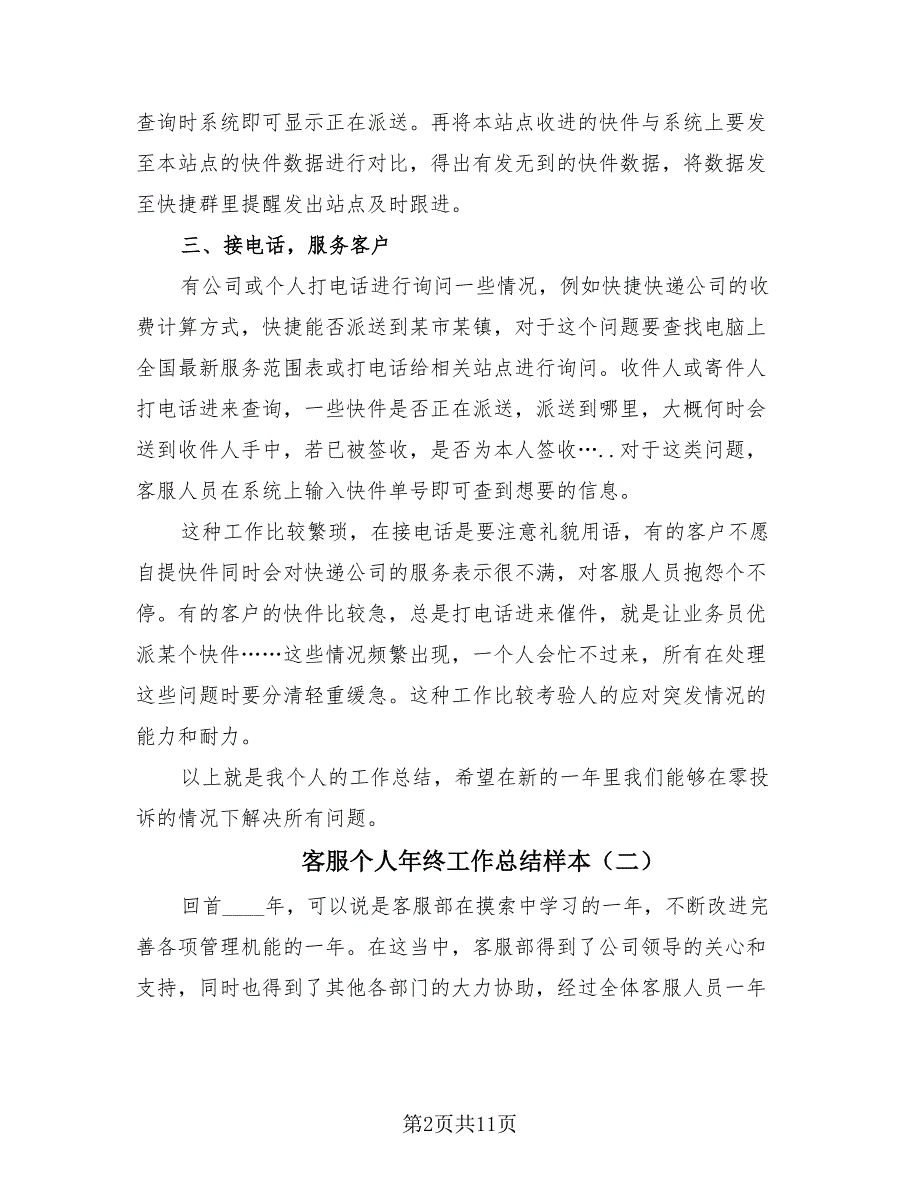 查询时系统即可显示正在派送。再将本站点收进的快件与系统上要发
至本站点的快件数据进行对比，得出有发无到的快件数据，将数据发
至快捷群里提醒发出站点及时跟进。
三、接电话，服务客户
有公司或个人打电话进行询问一些情况，例如快捷快递公司的收
费计算方式，快捷能否派送到某市某镇，对于这个问题要查找电脑上
全国最新服务范围表或打电话给相关站点进行询问。收件人或寄件人
打电话进来查询，一些快件是否正在派送，派送到哪里，大概何时会
送到收件人手中，若已被签收，是否为本人签收…..对于这类问题，
客服人员在系统上输入快件单号即可查到想要的信息。
这种工作比较繁琐，在接电话是要注意礼貌用语，有的客户不愿
自提快件同时会对快递公司的服务表示很不满，对客服人员抱怨个不
停。有的客户的快件比较急，总是打电话进来催件，就是让业务员优
派某个快件……这些情况频繁出现，一个人会忙不过来，所有在处理
这些问题时要分清轻重缓急。这种工作比较考验人的应对突发情况的
能力和耐力。
以上就是我个人的工作总结，希望在新的一年里我们能够在零投
诉的情况下解决所有问题。
客服个人年终工作总结样本（二）
回首____年，可以说是客服部在摸索中学习的一年，不断改进完
善各项管理机能的一年。在这当中，客服部得到了公司领导的关心和
支持，同时也得到了其他各部门的大力协助，经过全体客服人员一年
第2页共11页